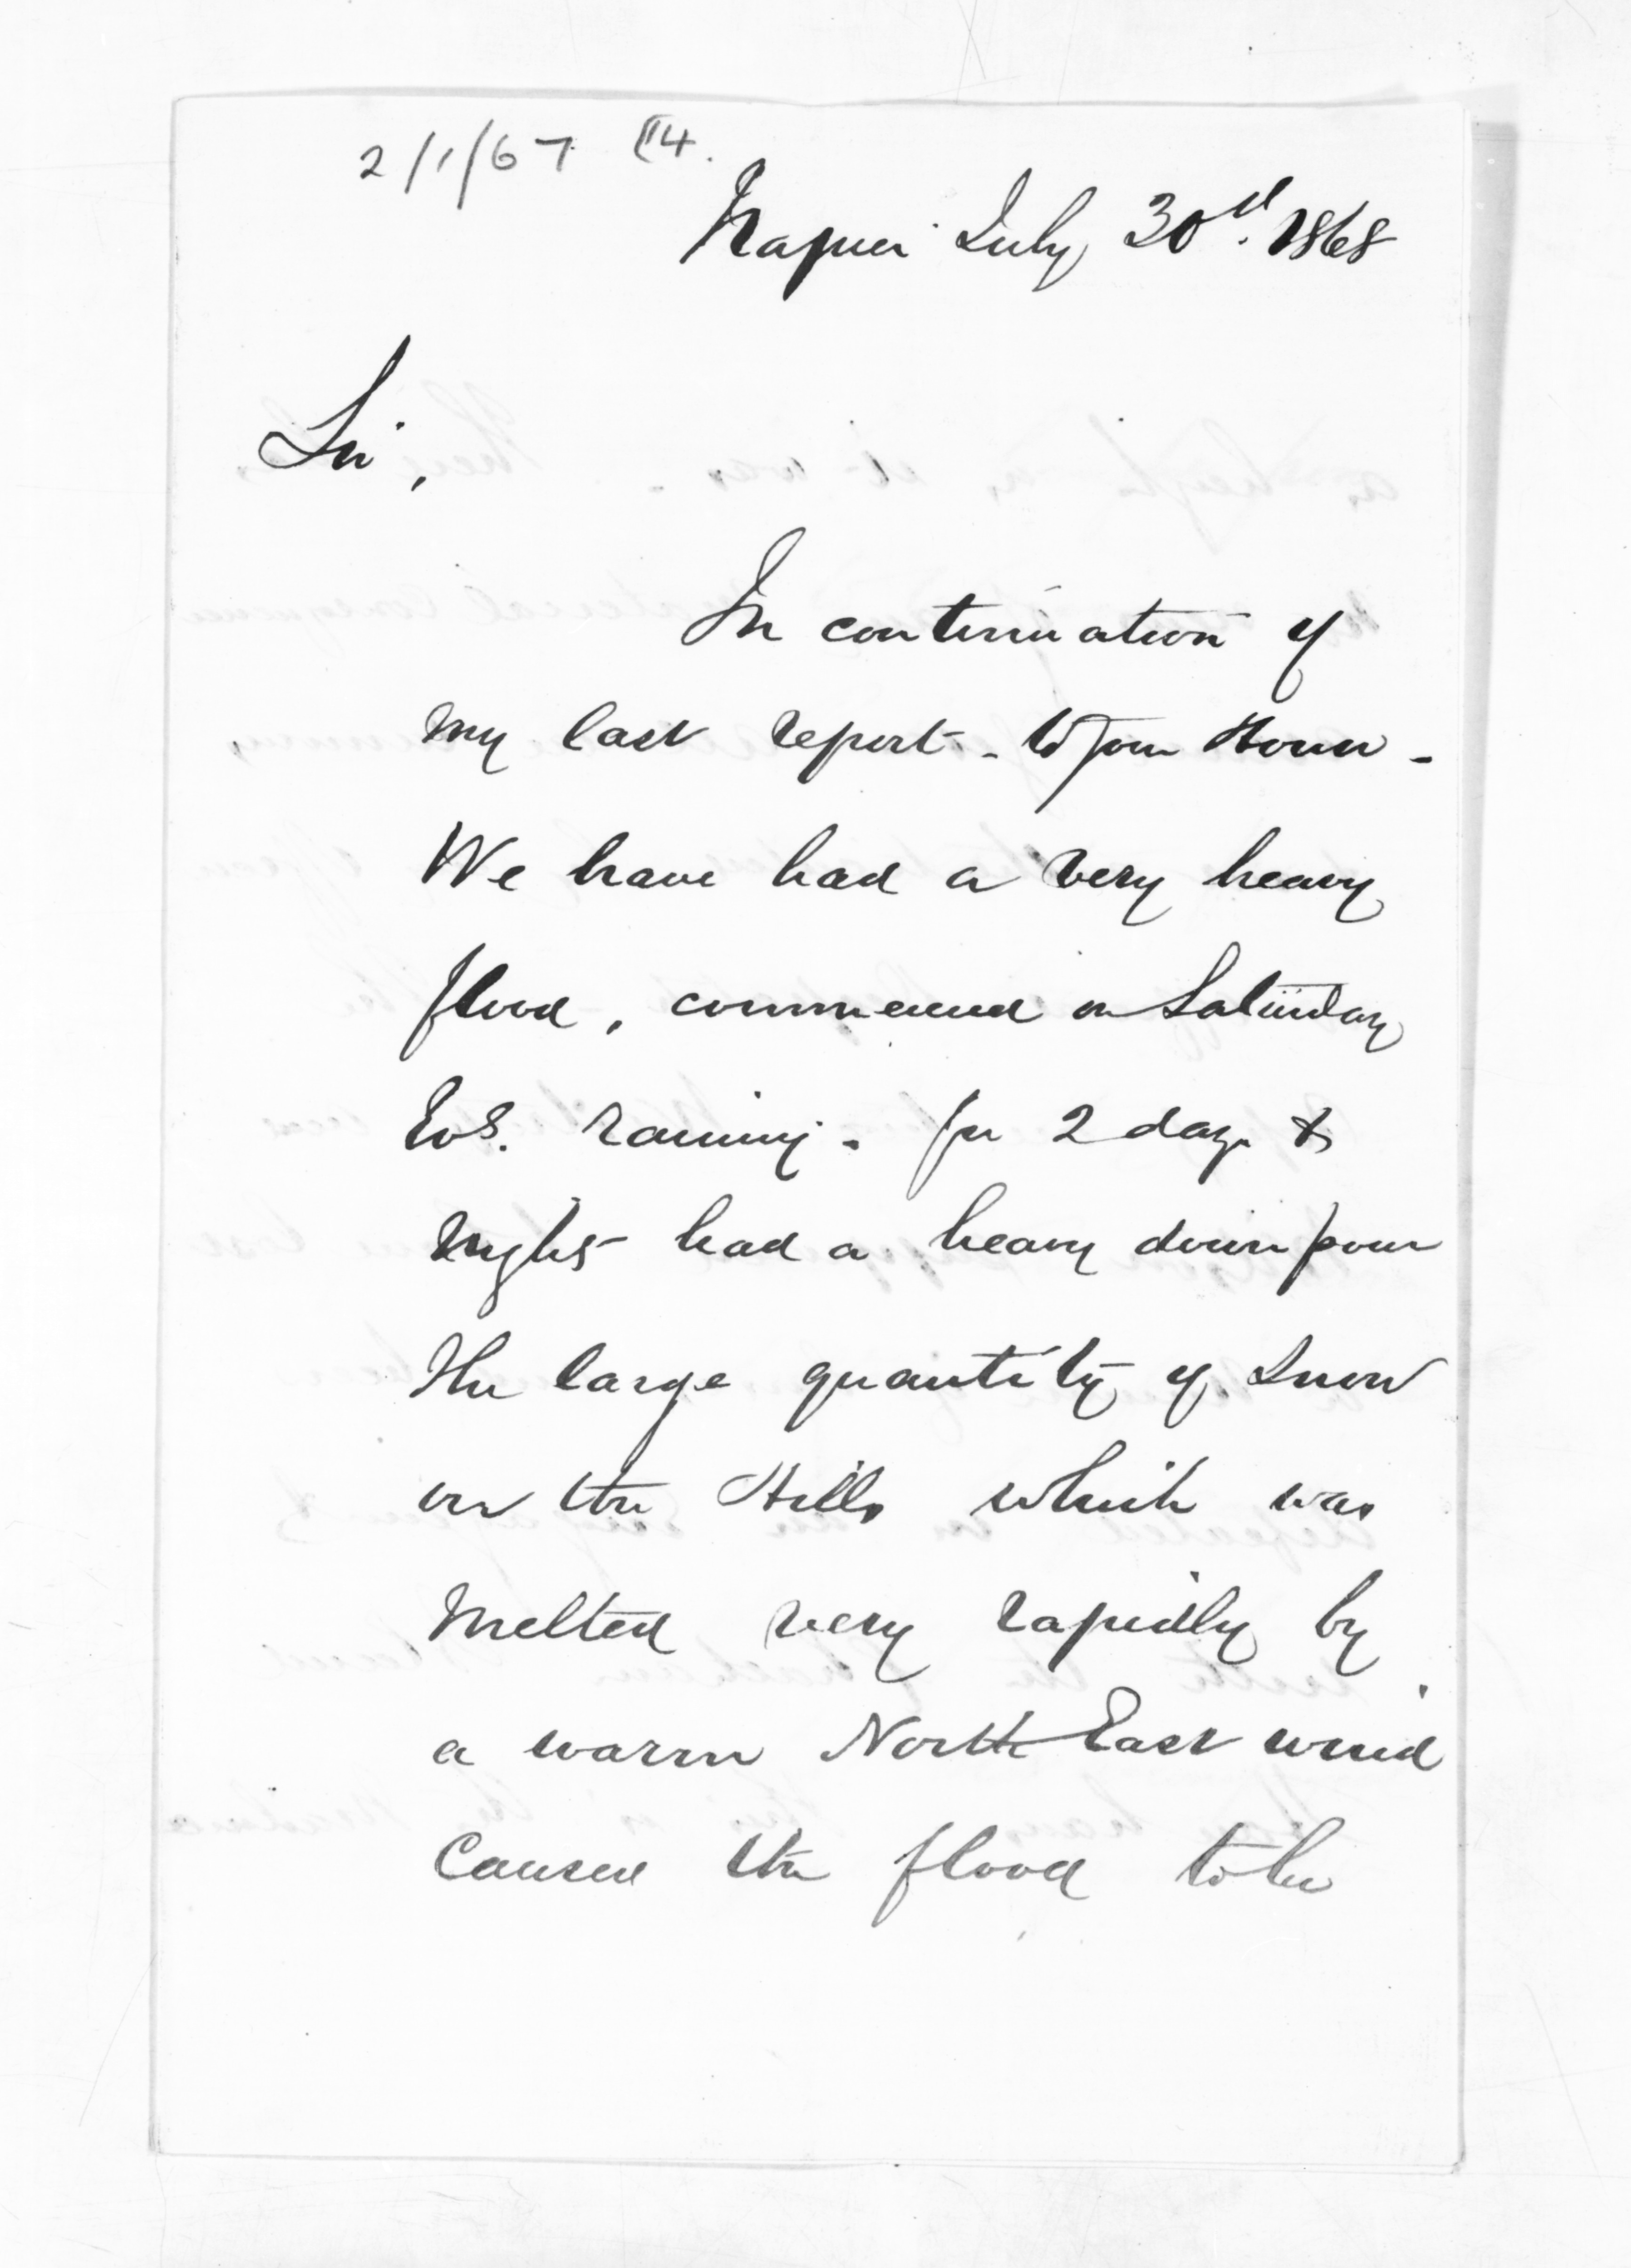 2/1/67
Napier July 30th. 1868
Sir,
In continuation of
my last report - to your Honor -
We have had a very heavy
flood, commenced on Saturday
raining - for 2 days &
nights had a heavy down pour
The large quantity of Snow
on the Hills which was
Melted very rapidly by
a warm North East wind
Caused the flood to be